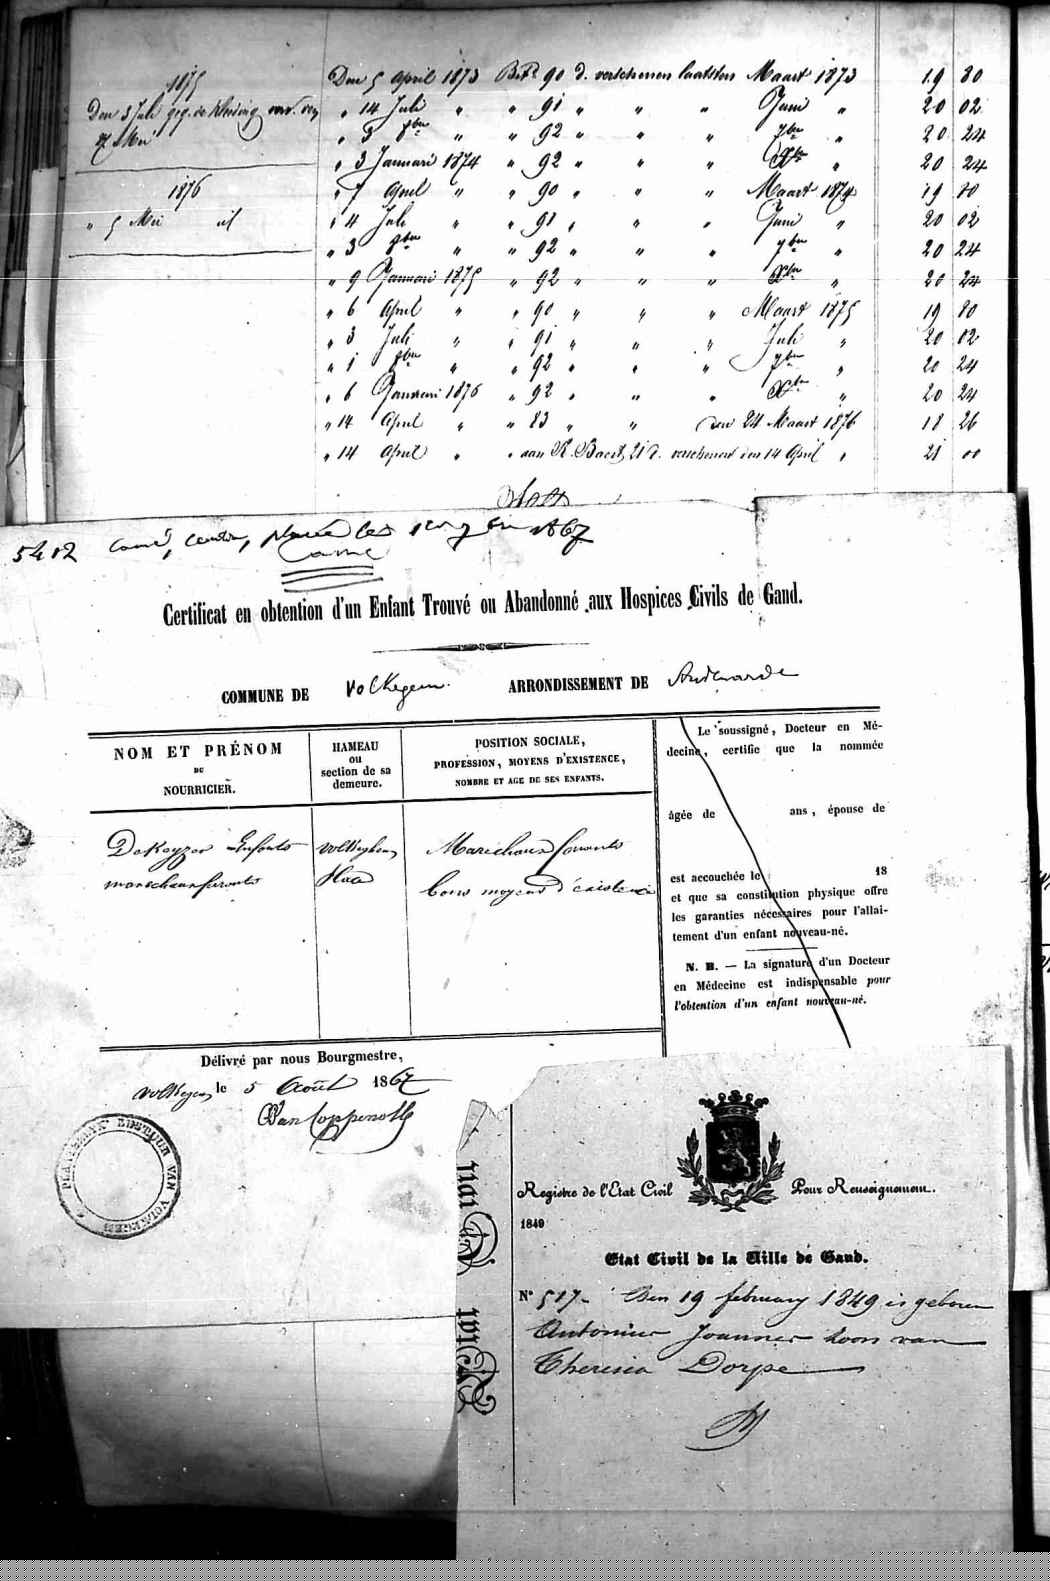 1875
Den 5 Juli geg. de kleeding
1876
" 5 Mei id
Den 5 April 1873 Bet. 90 d. verschenen laatsten Maart 1873 19 80
" 14 Juli " " 91 " " " Juni " 20 02
" 3 8ber " " 92 " " " 7ber " 20 24
" 3 Januari 1874 " 92 " " " Xber " 20 24
" 7 April " " 90 " " " Maart 1874 19 80
" 4 Juli " " 91 " " " Juni " 20 02
" 3 8ber " " 92 " " " 7ber " 20 24
" 9 Januari 1875 " 92 " " " Xber " 20 24
" 6 April " " 90 " " " Maart 1875 19 80
" 3 Juli " " 91 " " " Juli " 20 02
" 1 8ber " " 92 " " " 7ber " 20 24
" 6 Januari 1876 " 92 " " " Xber " 20 24
" 14 April " " 83 " " den 24 Maart 1876 18 26
" 14 April " " aan R. Baert, 21 d. verschenen den 14 April " 21 00
5402 placé les en 1867
Certificat en obtention d'un Enfant Trouvé ou Abandonné aux Hospices Civils de Gand.
COMMUNE DE Volkegem. ARRONDISSEMENT DE Audenarde
NOM ET PRÉNOM
DU
NOURRICIER.
HAMEAU
ou
section de sa
demeure.
POSITION SOCIALE,
PROFESSION, MOYENS D'EXISTENCE,
NOMBRE ET AGE DE SES ENFANTS.
DeKeyzer Enfants
marechaux ferrants
Volkeghem
Plaats
Marechaux ferrants
bons moyens d'existence
Le soussigné, Docteur en Mé-
decine, certifie que la nommée
âgée de ans, épouse de
est accouchée le 18
et que sa constitution physique offre
les garanties nécessaires pour l'allai-
tement d'un enfant nouveau-né.
N. B. — La signature d'un Docteur
en Médecine est indispensable pour
l'obtention d'un enfant nouveau-né.
Délivré par nous Bourgmestre,
Volkegem, le 5 Août 1867
Van Coppenolle
PLAATSELYK BESTUUR VAN VOLKEGEM
Etat Civil
Registre de l'Etat Civil Pour Renseignement.
1849
Etat Civil de la Ville de Gand.
N° 517. Den 19 february 1849 is geboren
Antonius Joannes zoon van
Theresia Dorpe